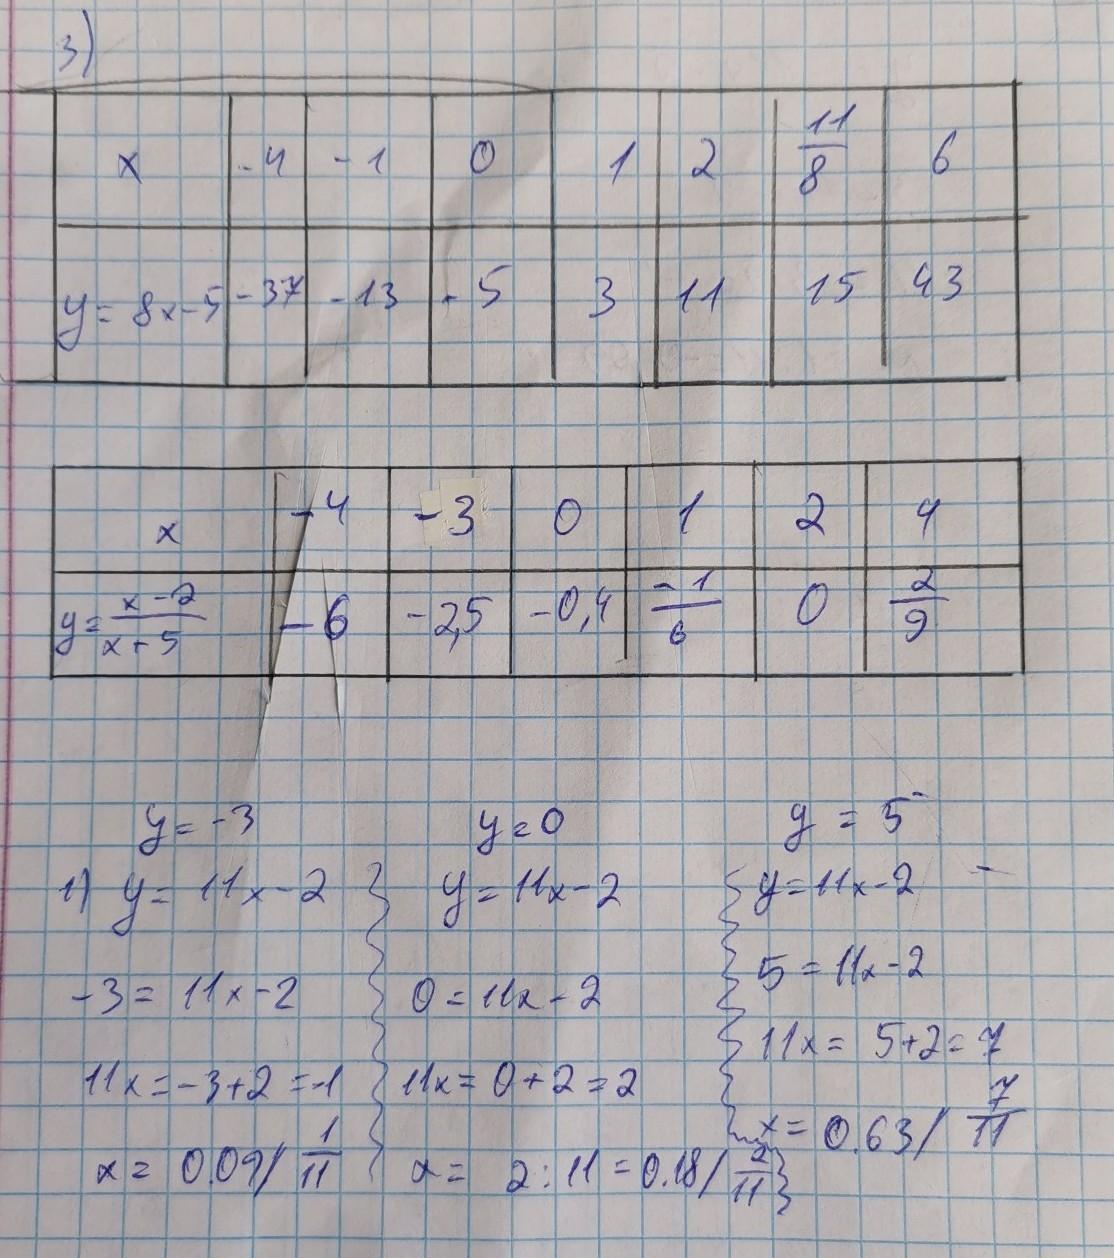 3)
x -4 -1 0 1 2 11/8 6
y = 8x-5 -37 -13 -5 3 11 15 43
x -4 -3 0 1 2 4
y = x-2/x+5 -6 -2,5 -0,4 -1/6 0 2/9
y = -3 y = 0 y = 5
1) y = 11x-2 y = 11x-2 y = 11x-2
-3 = 11x-2 0 = 11x-2 5 = 11x-2
11x = -3+2 = -1 11x = 0+2 = 2 11x = 5+2 = 7
x = 0.09/ 1/11 x = 2:11 = 0.18/ 2/11 x = 0.63/ 7/11